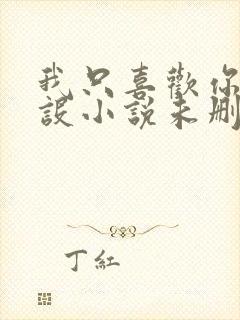 我只喜歡你
設小說未刪
丁紅